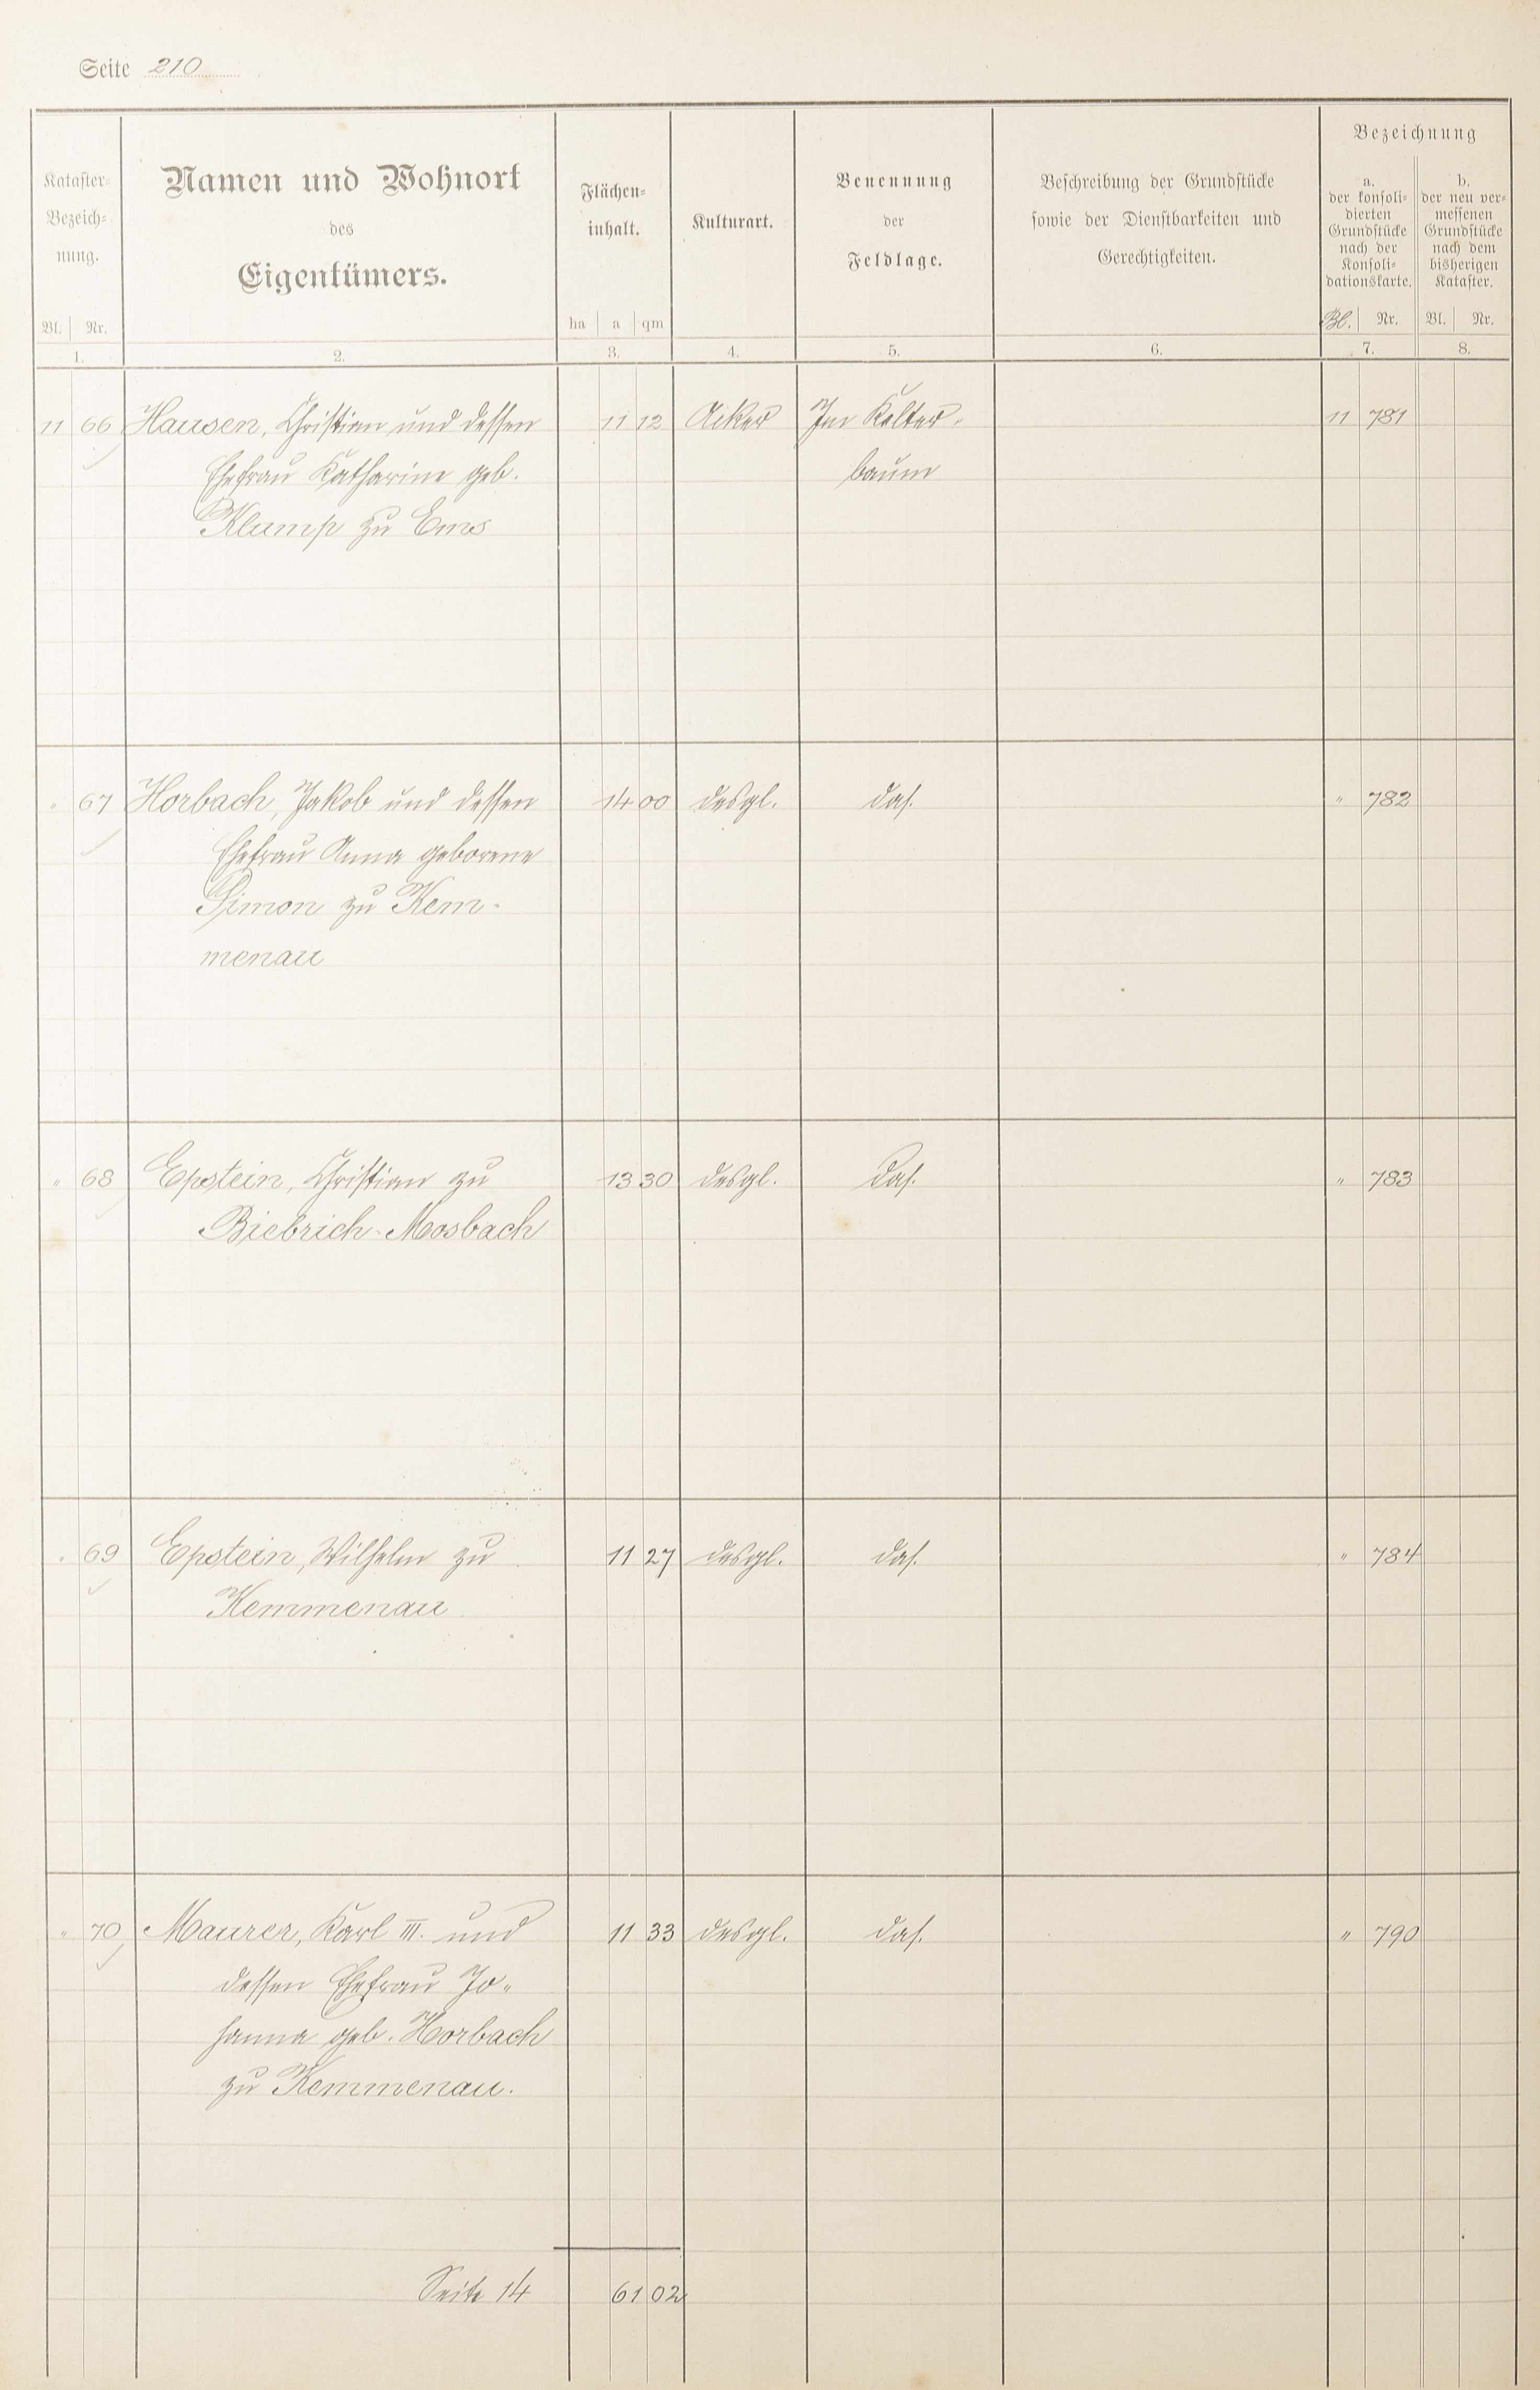 Seite 210
Kataster-
Bezeich-
nung.
Bl. Nr.
1.
Namen und Wohnort
des
Eigentümers.
2.
Flächen-
inhalt.
ha a qm
3.
Kulturart.
4.
Benennung
der
Feldlage.
5.
Beschreibung der Grundstücke
sowie der Dienstbarkeiten und
Gerechtigkeiten.
6.
Bezeichnung
a.
der konsoli-
dierten
Grundstücke
nach der
Konsoli-
dationskarte.
Bl. Nr.
7.
b.
der neu ver-
messenen
Grundstücke
nach dem
bisherigen
Kataster.
Bl. Nr.
8.
11 66 Hausen, Christian und dessen 11 12 Acker Im Kelter- 11 781
Ehefrau Katharine geb. baum
Klump zu Ems
" 67 Horbach, Jakob und dessen 14 00 desgl. das. " 782
Ehefrau Anna geborene
Simon zu Kem-
menau
" 68 Epstein, Christian zu 13 30 desgl. das. " 783
Biebrich-Mosbach
" 69 Epstein, Wilhelm zu 11 27 desgl. das. " 784
Kemmenau
" 70 Maurer, Karl III. und 11 33 desgl. das. " 790
dessen Ehefrau Jo-
hanna geb. Horbach
zu Kemmenau.
Seite 14 61 02